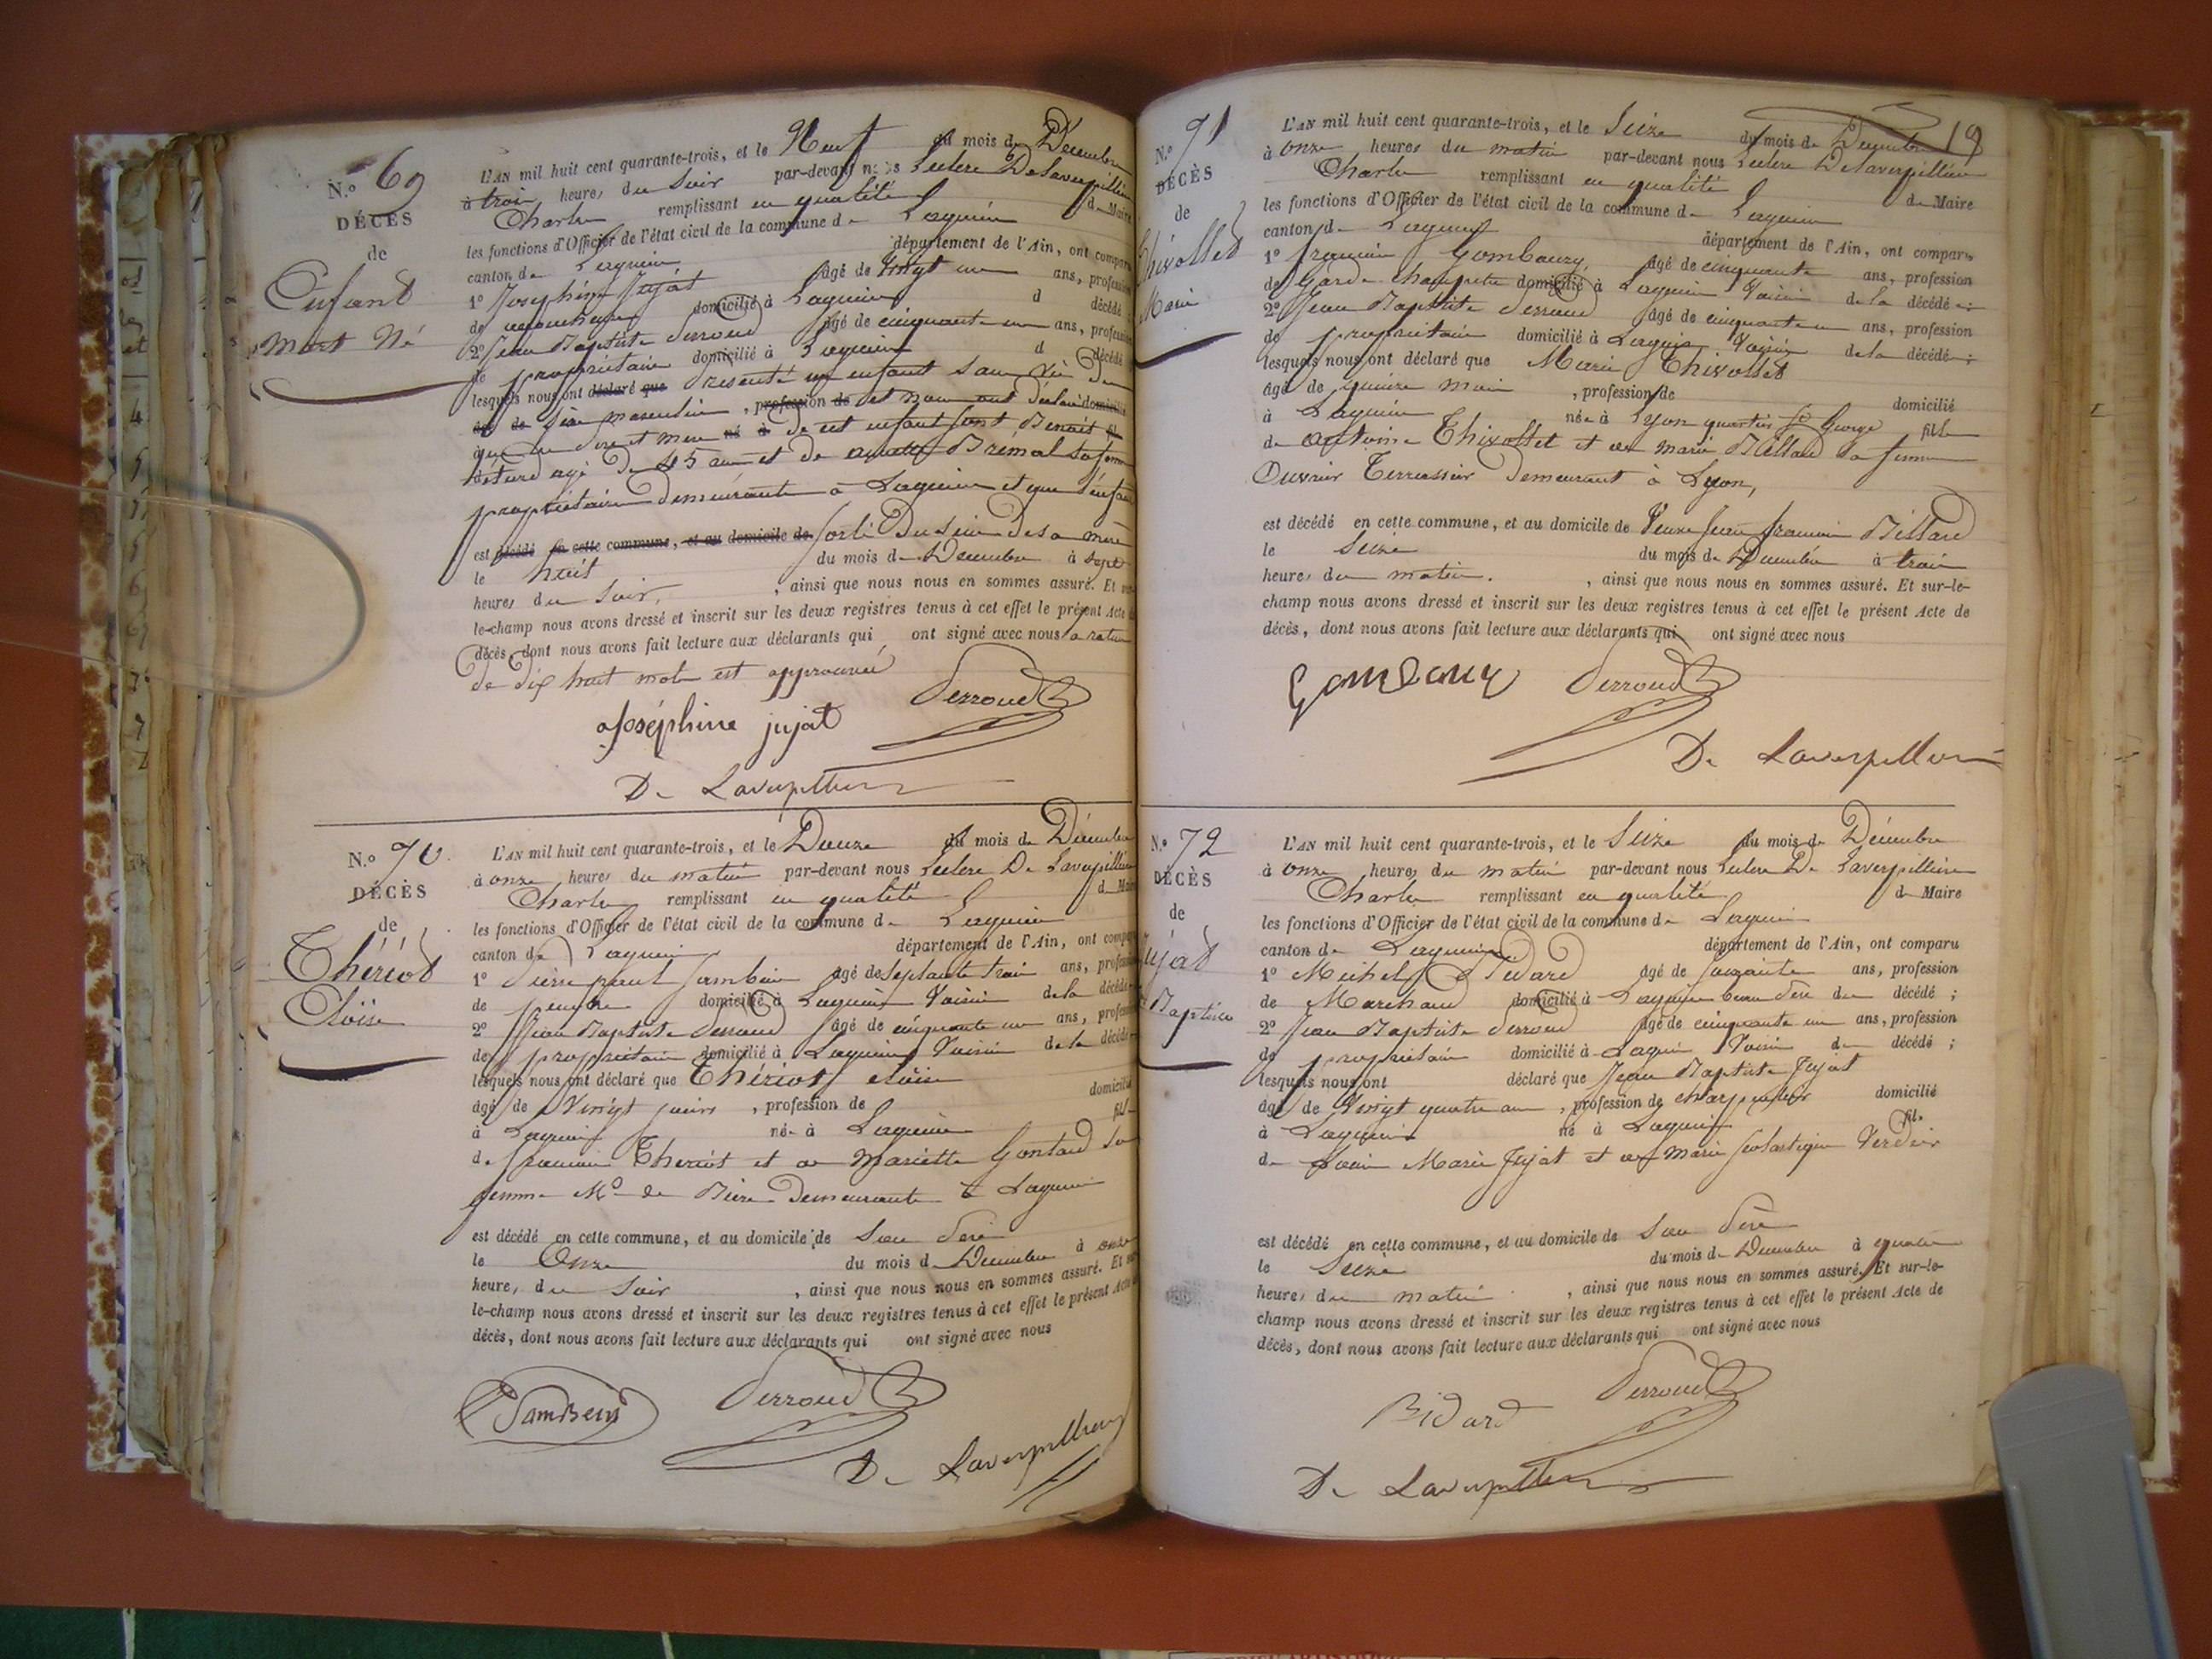 N.º 69
DÉCÈS
de
Enfant
mort Né
L'AN mil huit cent quarante-trois, et le Neuf du mois de Décembre
à trois heures du Soir par-devant nous Leclerc De Laverpillière
Charles remplissant en qualité de Maire
les fonctions d'Officier de l'état civil de la commune de Lagnieu
canton de Lagnieu département de l'Ain, ont comparu
1º Joséphine Jujat âgé de Vingt un ans, profession
de domicilié à Lagnieu d décédé
2º Jean Baptiste Perroud âgé de cinquante un ans, profession
de propriétaire domicilié à Lagnieu d décédé
lesquels nous ont déclaré que Présenté un enfant sans vie
de Sexe masculin, profession de et nous ont déclaré domicilié
que père et mère né à de cet enfant sont Benoit
agé de 45 ans et de Brémal sa femme
propriétaire demeurants à Lagnieu et que l'enfant
est décédé en cette commune, et au domicile de Sorti Du Sein De sa mère
le huit du mois de Décembre à sept
heures du Soir, ainsi que nous nous en sommes assuré. Et sur-
le-champ nous avons dressé et inscrit sur les deux registres tenus à cet effet le présent Acte de
décès, dont nous avons fait lecture aux déclarants qui ont signé avec nous
De dix huit mots est approuvée
Perroud
Joséphine jujat
De Laverpillière
N.º 70
DÉCÈS
de
Thériot
L'AN mil huit cent quarante-trois, et le Douze du mois de Décembre
à onze heures du matin par-devant nous Leclerc De Laverpillière
Charles remplissant en qualité de Maire
les fonctions d'Officier de l'état civil de la commune de Lagnieu
canton de Lagnieu département de l'Ain, ont comparu
1º Pierre paul Jambein âgé de Septante trois ans, profession
de domicilié à Lagnieu Voisin de la décédée
2º Jean Baptiste Perroud âgé de cinquante un ans, profession
de propriétaire domicilié à Lagnieu Voisin de la décédée
lesquels nous ont déclaré que Thériot
âgé de Vingt jours, profession de domicilié
à Lagnieu née à Lagnieu fille
de françois Thériot et de Mariette Gontard Sa
femme Md de Bière Demeurants à Lagnieu
est décédé en cette commune, et au domicile de Son Père
le Onze du mois de Décembre à onze
heures du Soir, ainsi que nous nous en sommes assuré. Et sur-
le-champ nous avons dressé et inscrit sur les deux registres tenus à cet effet le présent Acte de
décès, dont nous avons fait lecture aux déclarants qui ont signé avec nous
Perroud
De Laverpillière
19
N.º 71
DÉCÈS
de
Thivollet
Marie
L'AN mil huit cent quarante-trois, et le Seize du mois de Décembre
à onze heures du matin par-devant nous Leclerc De Laverpillière
Charles remplissant en qualité de Maire
les fonctions d'Officier de l'état civil de la commune de Lagnieu
canton de Lagnieu département de l'Ain, ont comparu
1º françois Gombauxy âgé de cinquante ans, profession
de Garde champêtre domicilié à Lagnieu Voisin de la décédée;
2º Jean Baptiste Perroud âgé de cinquante un ans, profession
de propriétaire domicilié à Lagnieu Voisin de la décédée;
lesquels nous ont déclaré que Marie Thivollet
âgé de quinze mois, profession de domicilié
à Lagnieu née à Lyon quartier St George fille
de antoine Thivollet et de marie Billard sa femme
Ouvrier Terrassier Demeurant à Lyon,
est décédé en cette commune, et au domicile de Veuve Jean françois Billard
le Seize du mois de Décembre à trois
heures du matin. , ainsi que nous nous en sommes assuré. Et sur-le-
champ nous avons dressé et inscrit sur les deux registres tenus à cet effet le présent Acte de
décès, dont nous avons fait lecture aux déclarants qui ont signé avec nous
Perroud
De Laverpillière
N.º 72
DÉCÈS
de
Jujat
Baptiste
L'AN mil huit cent quarante-trois, et le Seize du mois de Décembre
à onze heures du matin par-devant nous Leclerc De Laverpillière
Charles remplissant en qualité de Maire
les fonctions d'Officier de l'état civil de la commune de Lagnieu
canton de Lagnieu département de l'Ain, ont comparu
1º Michel Bidard âgé de soixante ans, profession
de Marchand domicilié à Lagnieu beau Père du décédé;
2º Jean Baptiste Perroud âgé de cinquante un ans, profession
de propriétaire domicilié à Lagnieu Voisin du décédé;
lesquels nous ont déclaré que Jean Baptiste Jujat
âgé de Vingt quatre ans, profession de charpentier domicilié
à Lagnieu né à Lagnieu fils
de Louis Marie Jujat et de Marie Scolastique Verdier
est décédé en cette commune, et au domicile de Son Père
le Seize du mois de Décembre à quatre
heures du matin , ainsi que nous nous en sommes assuré. Et sur-le-
champ nous avons dressé et inscrit sur les deux registres tenus à cet effet le présent Acte de
décès, dont nous avons fait lecture aux déclarants qui ont signé avec nous
Perroud
Bidard
De Laverpillière